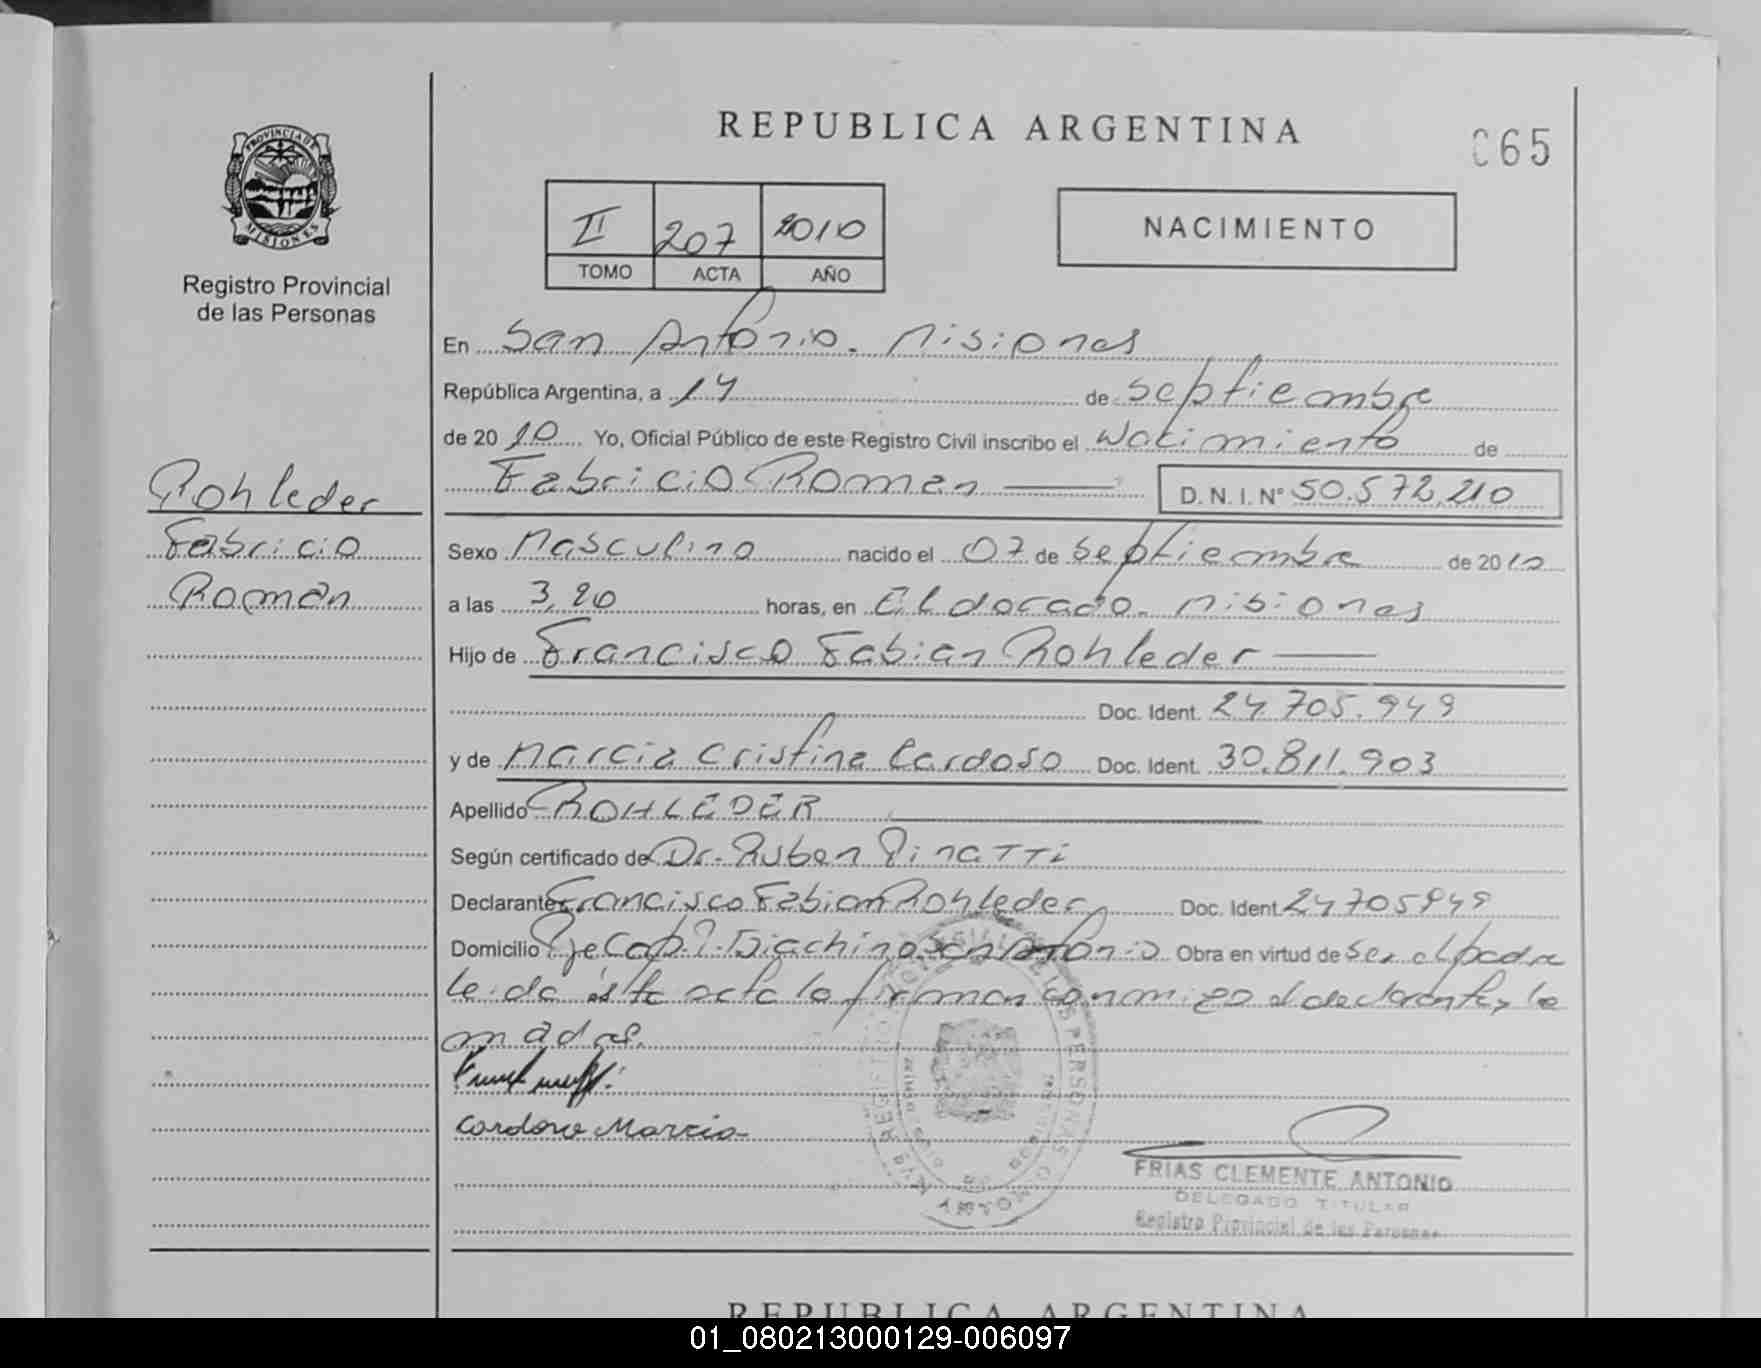 REPUBLICA ARGENTINA
065
PROVINCIA DE
MISIONES
Registro Provincial
de las Personas
II 207 2010
TOMO ACTA AÑO
NACIMIENTO
En San Antonio. Misiones
República Argentina, a 14 de septiembre
de 2010 Yo, Oficial Público de este Registro Civil inscribo el Nacimiento de
Fabricio Roman D. N. I. Nº 50.572.210
Rohleder
Fabricio
Roman
Sexo Masculino nacido el 07 de septiembre de 2010
a las 3,20 horas, en Eldorado. Misiones
Hijo de Francisco Fabian Rohleder
Doc. Ident. 24.705.949
y de Marcia Cristina Cardoso Doc. Ident. 30.811.903
Apellido ROHLEDER
Según certificado de Dr. Ruben Pinatti
Declarante Francisco Fabian Rohleder Doc. Ident 24705949
Domicilio Giachino San Antonio Obra en virtud de ser el padre
leida ésta acta la firman conmigo el declarante y la
madre.
Cardoso Marcia
FRIAS CLEMENTE ANTONIO
DELEGADO TITULAR
Registro Provincial de las Personas
REPUBLICA ARGENTINA
01_080213000129-006097